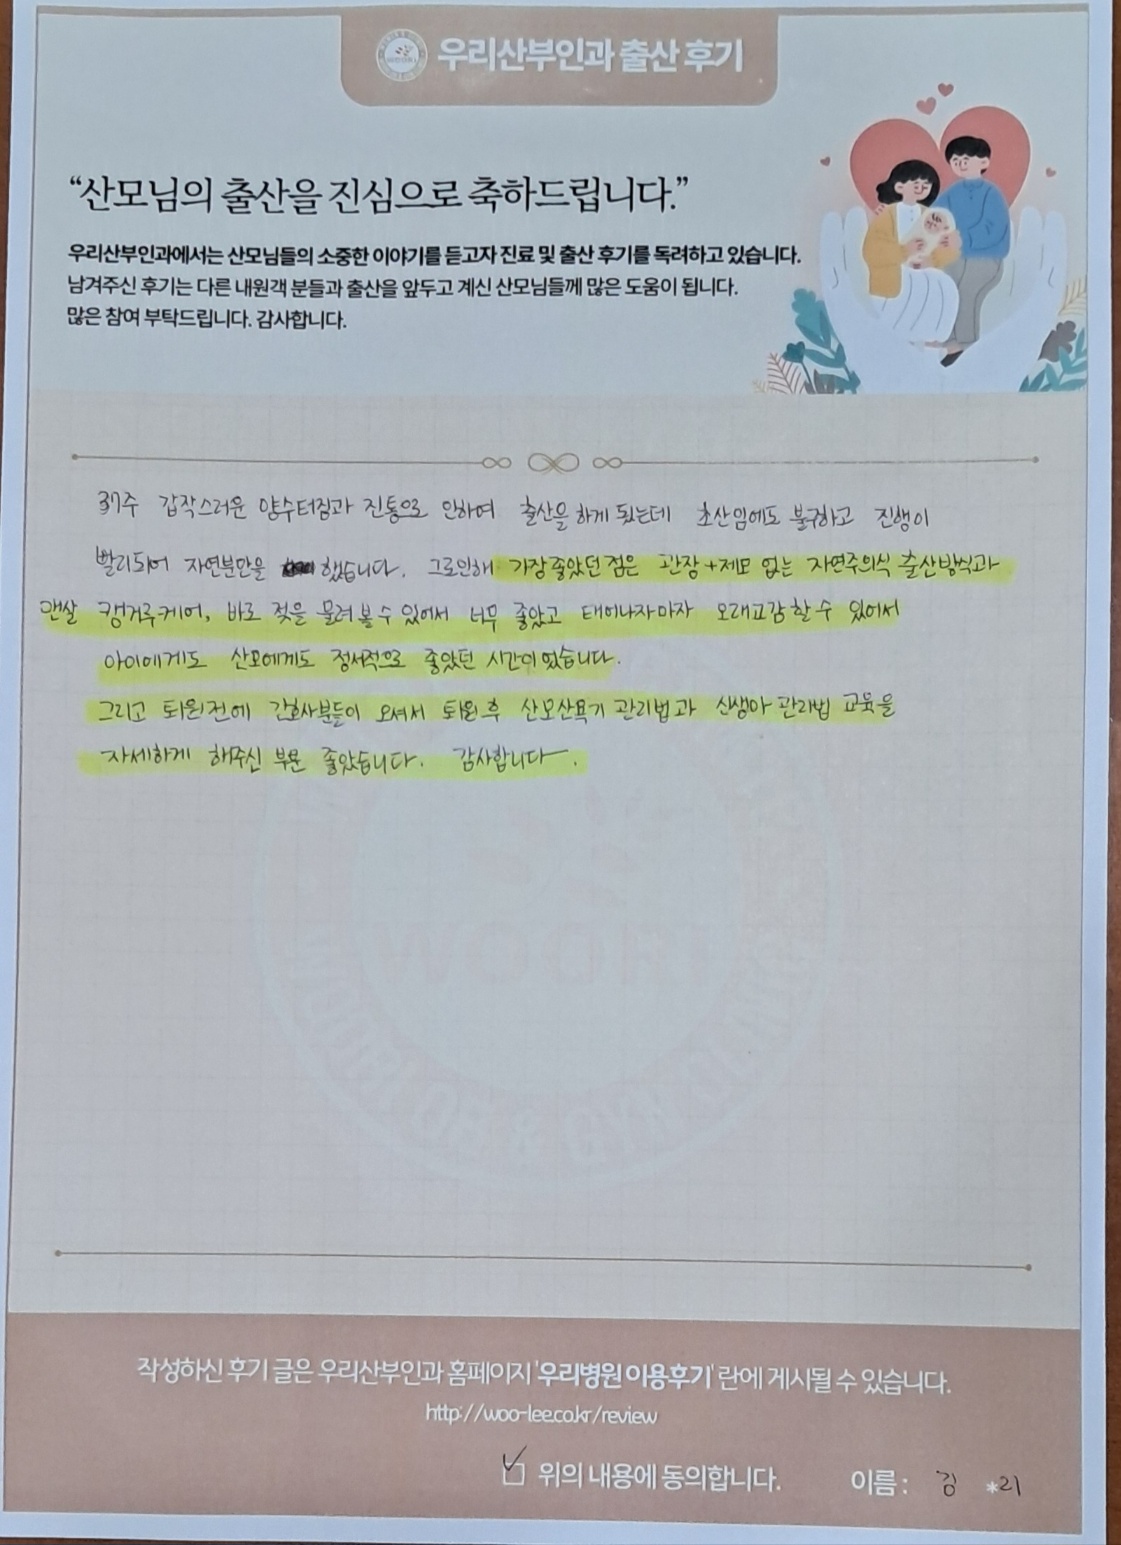 우리산부인과 출산 후기
“산모님의 출산을 진심으로 축하드립니다.”
우리산부인과에서는 산모님들의 소중한 이야기를 듣고자 진료 및 출산 후기를 독려하고 있습니다.
남겨주신 후기는 다른 내원객 분들과 출산을 앞두고 계신 산모님들께 많은 도움이 됩니다.
많은 참여 부탁드립니다. 감사합니다.
37주 갑작스러운 양수터짐과 진통으로 인하여 출산을 하게 됬는데 초산임에도 불구하고 진행이
빨리되어 자연분만을 했습니다. 그로인해 가장 좋았던 점은 관장+제모 없는 자연주의식 출산방식과
맨살 캥거루케어, 바로 젖을 물려 볼 수 있어서 너무 좋았고 태어나자마자 오래교감 할 수 있어서
아이에게도 산모에게도 정서적으로 좋았던 시간이었습니다.
그리고 퇴원전에 간호사분들이 오셔서 퇴원 후 산모산욕기 관리법과 신생아 관리법 교육을
자세하게 해주신 부분 좋았습니다. 감사합니다.
작성하신 후기 글은 우리산부인과 홈페이지 '우리병원 이용후기' 란에 게시될 수 있습니다.
http://woo-lee.co.kr/review
위의 내용에 동의합니다. 이름 : 김 *리